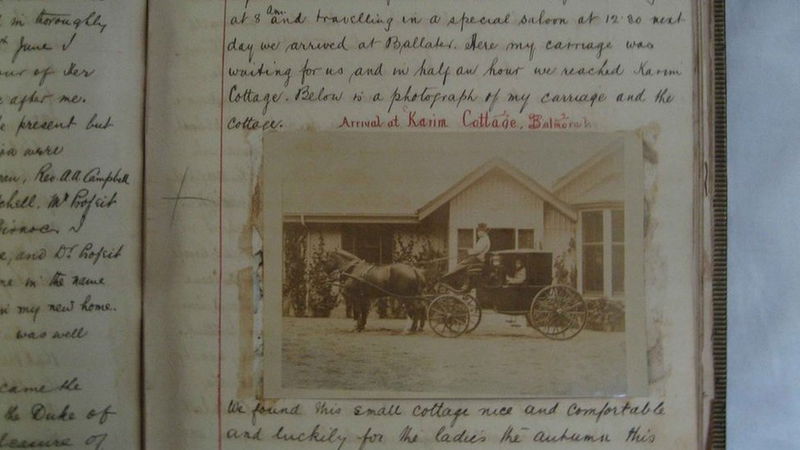 d in thoroughly
June I
our of Her
after me.
present but
were
Rev. A A Campbell
chell. Mr Profeit
I
e, and Dr Profeit
me in the name
in my new home.
was well
came the
the Duke of
pleasure of
at 8 am and travelling in a special saloon at 12.30 next
day we arrived at Ballater. Here my carriage was
waiting for us and in half an hour we reached Karim
Cottage. Below is a photograph of my carriage and the
cottage.
Arrival at Karim Cottage, Balmoral
We found this small cottage nice and comfortable
and luckily for the ladies the autumn this